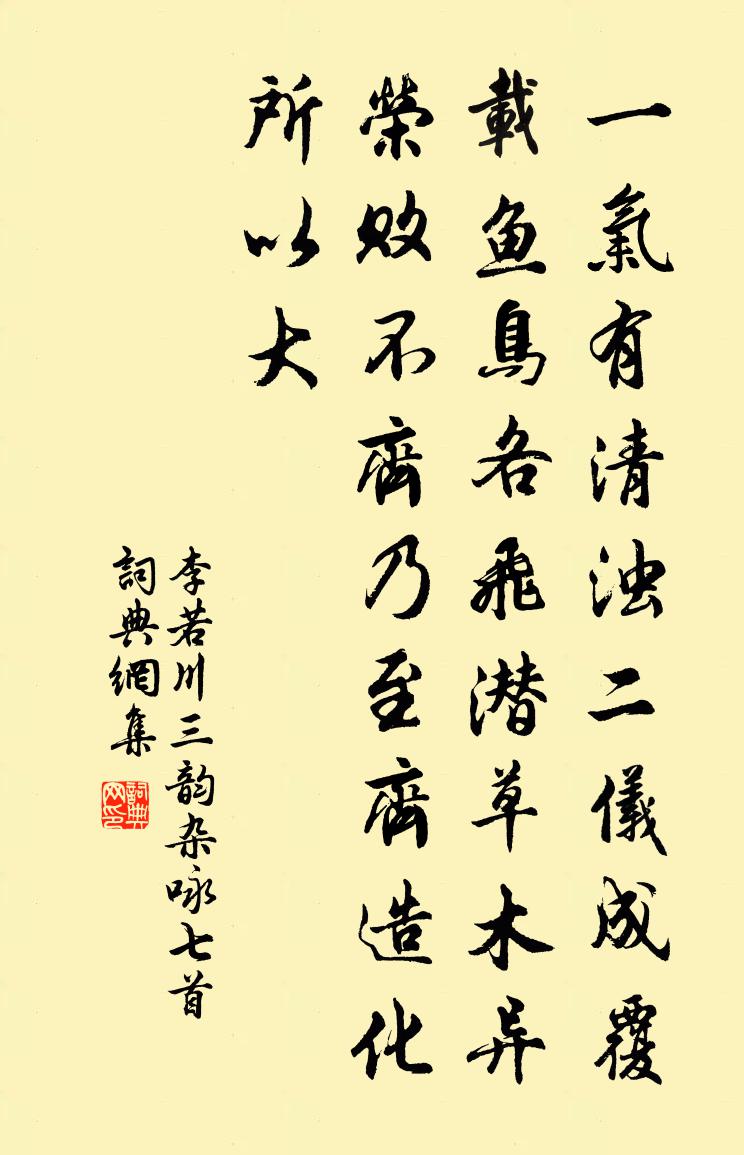 一氣有清浊二儀成覆
載鱼鳥各飛潜草木异
榮敗不齊乃至齊造化
所以大
李若川三韵杂咏七首
詞典網集
詞典网印